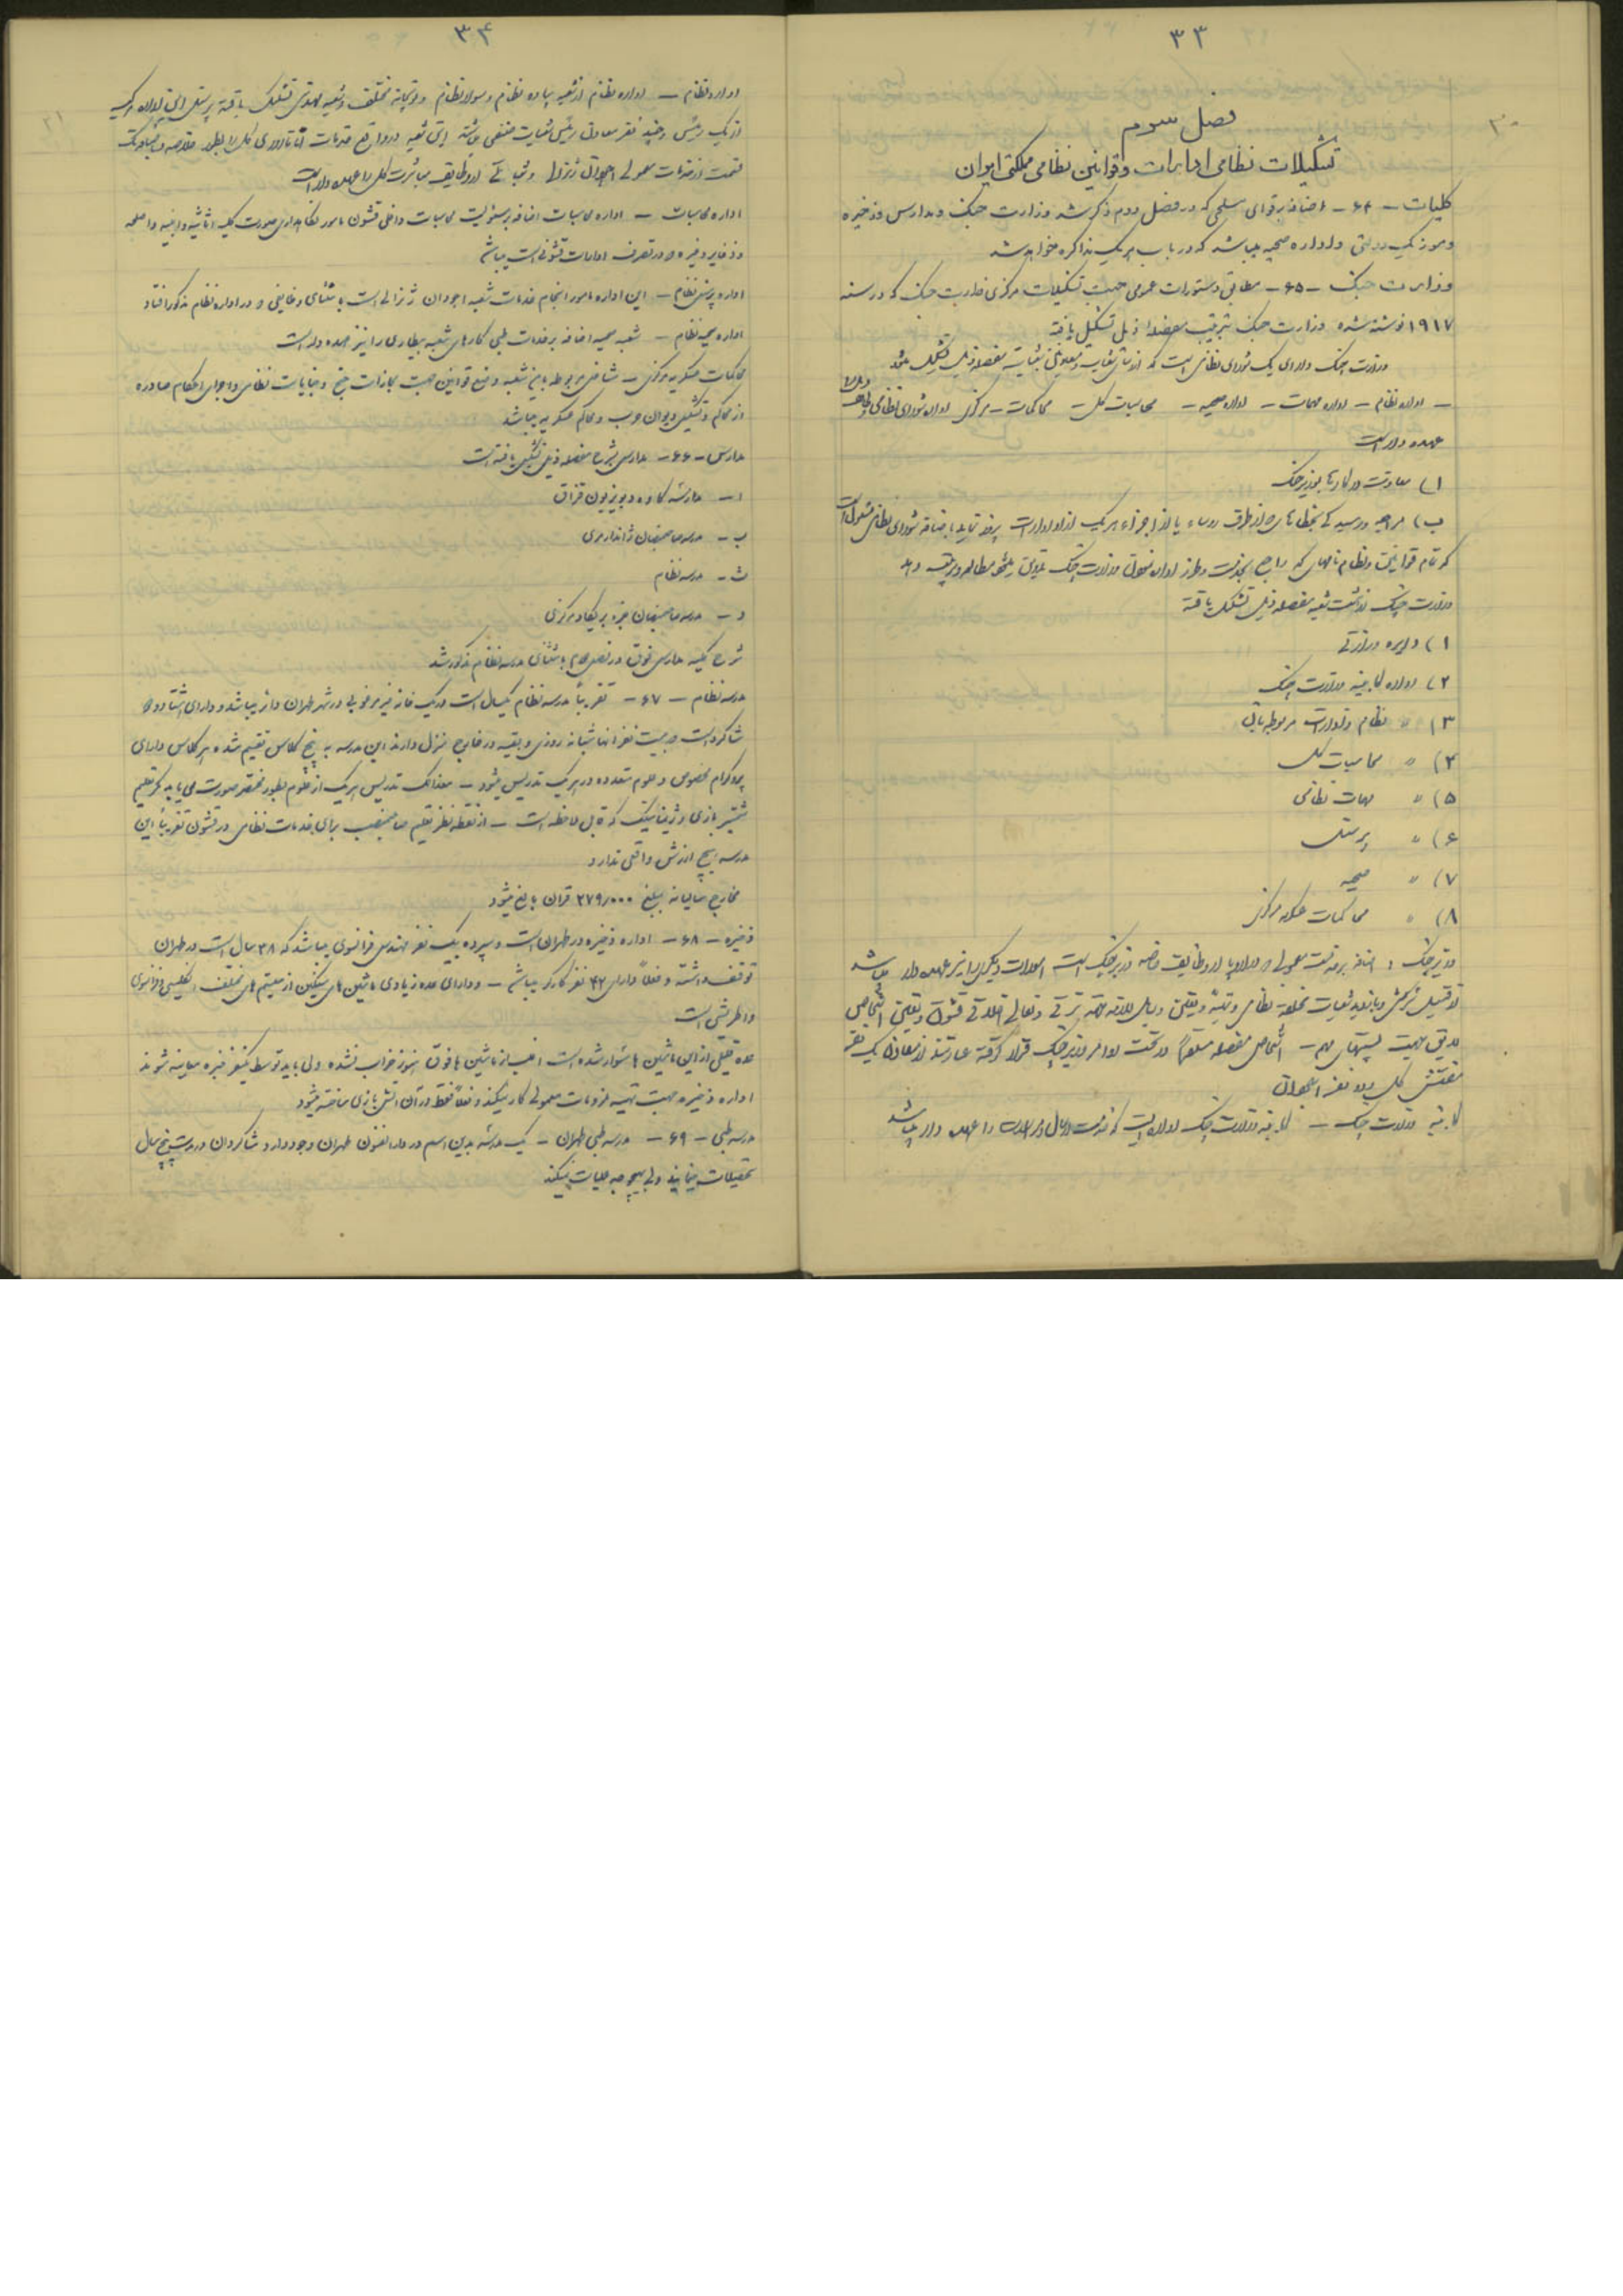 ۳۳
فصل سوم
تشکیلات نظامی ادارات و قوانین نظامی مملکتی ایران
کلیات - ۶۴ - اضافه بر قوای مسلحی که در فصل دوم ذکر شد وزارت جنگ و مدارس و ذخیره
و موزیک دولتی و اداره صحیه میباشد که در باب هر یک مذاکره خواهد شد
وزارت جنگ - ۶۵ - مطابق دستورات عمومی جهت تشکیلات مرکزی وزارت جنگ که در سنه
۱۹۱۷ نوشته شده وزارت جنگ بترتیب مفصله ذیل تشکیل یافته
وزارت جنگ دارای یک شورای نظامی است که از مفصله ذیل تشکیل میشود
- اداره نظام - اداره مهمات - اداره صحیه - محاسبات کل - محاکمات - مرکزی اداره شورای نظامی
عهده دار است
ا) معاونت در کارها بوزیر جنگ
که تمام قوانین و نظام نامهای که راجع بخدمت و طرز اداره وزارت جنگ
وزارت جنگ از هشت شعبه مفصله ذیل تشکیل یافته
۱) دایره وزارتی
۲) اداره کابینه وزارت جنگ
۳) " نظام و ادارات مربوطه بآن
۴) " محاسبات کل
۵) " مهمات نظامی
۶) " پرسنل
۷) " صحیه
۸) " محاکمات عسکریه مرکزی
وزیر جنگ : اضافه بر خدمت معمولی وظایف خاصه وزیر جنگ است ادارات دیگری را نیز عهده دار میباشد
از قبیل سرکشی و بازدید شعبات مختلفه نظامی
لایق جهت پستهای مهم - اشخاص مفصله مستقیماً در تحت اوامر وزیر جنگ قرار گرفته عبارتند از معاون یک نفر
مفتش کل و دو نفر آجودان
کابینه وزارت جنگ - کابینه وزارت جنگ اداره ایست که خدمت ارسال و مراسلات را عهده دار میباشد
۳۴
اداره نظام - اداره نظام از شعبه پیاده نظام و سواره نظام و توپخانه مختلف و شعبه مهندسی تشکیل یافته پرسنل این اداره مرکب
از یک رئیس و چند نفر معاون رئیس شعبات
قسمت از خدمات معمولی آجودان ژنرالی
اداره محاسبات - اداره محاسبات اضافه بر مسئولیت محاسبات داخلی قشون مامور نگاهداری صورت کلیه اثاثیه و ابنیه و اسلحه
و ذخایر و غیره در تصرف ادارات قشونی است میباشد
اداره پرسنل نظام - این اداره مامور انجام خدمات شعبه آجودان ژنرالی است باستثنای وظایفی که در اداره نظام مذکور افتاد
اداره صحیه نظام - شعبه صحیه اضافه بر خدمات طبی کارهای شعبه بیطاری را نیز عهده دار است
محاکمات عسکریه مرکزی - مشاغل مربوطه باین شعبه وضع قوانین جهت مجازات جنح و جنایات نظامی و اجرای احکام صادره
از محاکم و تشکیل دیوان حرب و محاکم عسکریه میباشد
مدارس - ۶۶ - مدارس بشرح مفصله ذیل تشکیل یافته است
ا - مدرسه کاده دیویزیون قزاق
ب - مدرسه صاحبمنصبان ژاندارمری
ث - مدرسه نظام
د - مدرسه صاحبمنصبان جزء بریگاد مرکزی
شرح کلیه مدارس فوق در فصل دوم باستثنای مدرسه نظام مذکور شد
مدرسه نظام - ۶۷ - تقریباً مدرسه نظام یکسال است در یک خانه غیر مرغوبی در شهر طهران دائر میباشد و دارای هشتاد و دو
شاگرد است بیست نفر آنها شبانه روزی و بقیه در خارج منزل دارند این مدرسه به پنج کلاس تقسیم شده هر کلاس دارای
پروگرام مخصوص و علوم متعدده در هر یک تدریس میشود - معذلک تدریس هر یک از علوم بطور مختصر صورت می یابد مگر تعلیم
شمشیر بازی و ژیمناستیک که قابل ملاحظه است - از نقطه نظر تعلیم صاحبمنصب برای خدمات نظامی در قشون تقریباً این
مدرسه هیچ ارزش واقعی ندارد
مخارج سالیانه بمبلغ ۲۷۹٫۰۰۰ قران بالغ میشود
ذخیره - ۶۸ - اداره ذخیره در طهران است و سپرده بیک نفر مهندس فرانسوی میباشد که ۳۸ سال است در طهران
توقف داشته و فعلاً دارای ۴۲ نفر کارگر میباشد - و دارای عده زیادی ماشین های سیستم های مختلف انگلیسی و فرانسوی
و اطریشی است
عده قلیلی از این ماشین ها سوار شده است اغلب از ماشین های فوق هنوز خراب نشده ولی باید توسط یکنفر خبره معاینه شوند
اداره ذخیره جهت تهیه ملزومات معمولی کار میکند و فعلاً فقط در آن آتش بازی ساخته میشود
مدرسه طبی - ۶۹ - مدرسه طبی طهران - یک مدرسه بدین اسم در دارالفنون طهران وجود دارد و شاگردان در مدت پنج سال
تحصیلات مینمایند ولی بهیچوجه عملیات نمیکنند